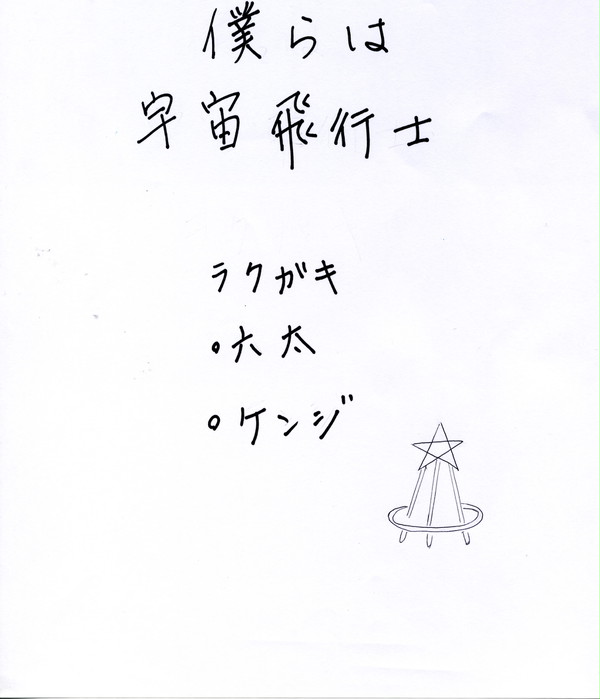 僕らは
宇宙飛行士
ラクガキ
・六太
・ケンジ